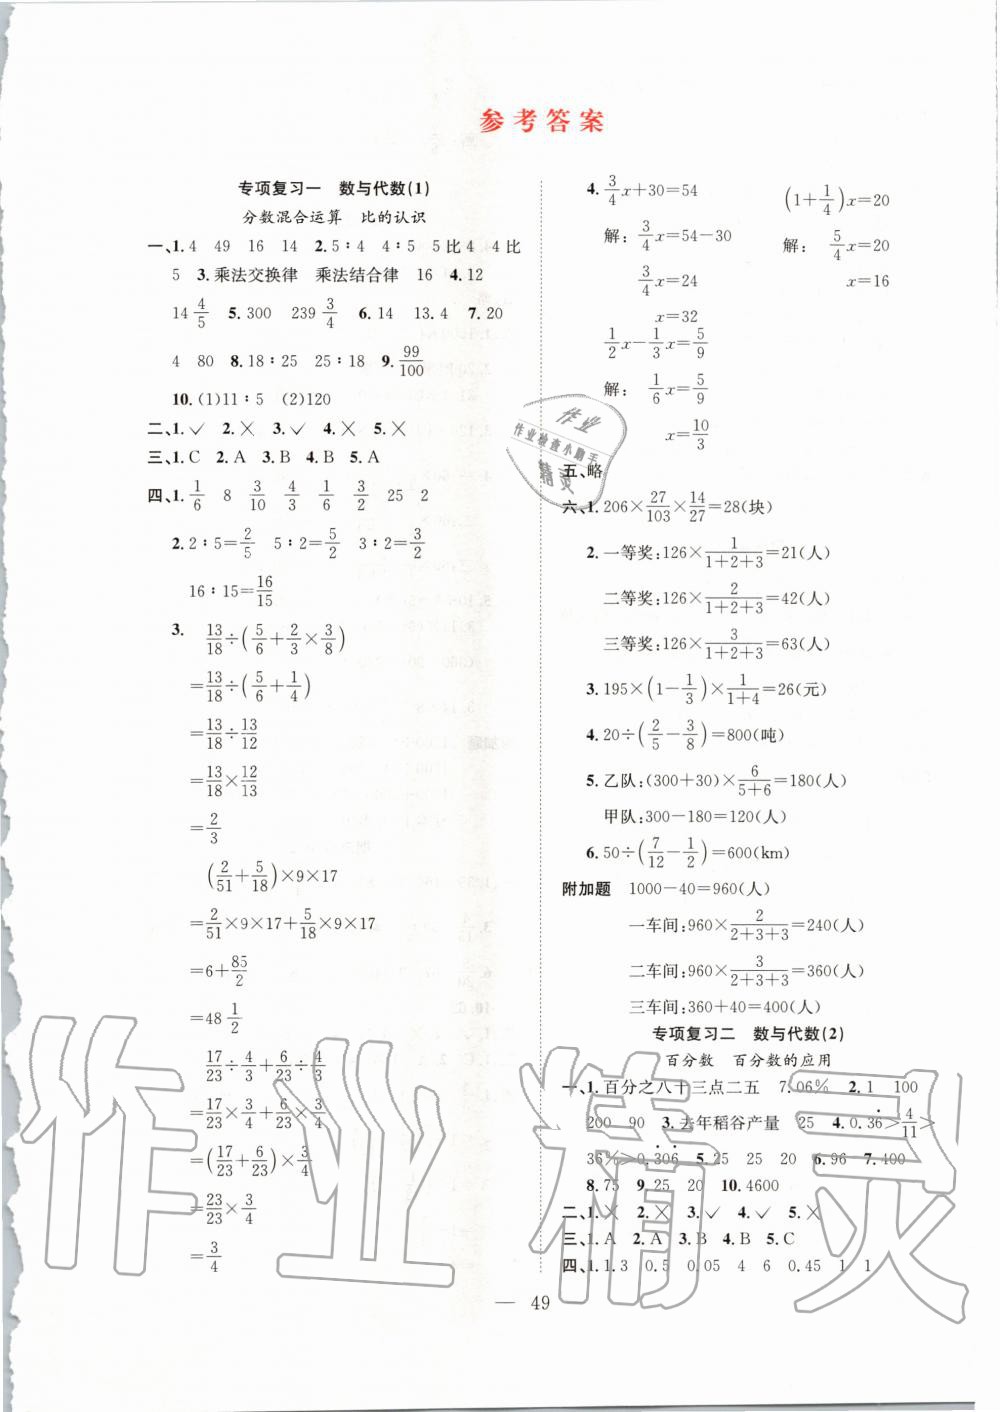 参考答案
专项复习一 数与代数(1)
分数混合运算 比的认识
一、1.4 49 16 14 2.5∶4 4∶5 5比4 4比
5 3.乘法交换律 乘法结合律 16 4.12
14 4/5 5.300 239 3/4 6.14 13.4 7.20
4 80 8.18∶25 25∶18 9. 99/100
10.(1)11∶5 (2)120
二、1.✓ 2.✕ 3.✓ 4.✕ 5.✕
三、1.C 2.A 3.B 4.B 5.A
四、1. 1/6 8 3/10 4/3 1/6 3/2 25 2
2.2∶5=2/5 5∶2=5/2 3∶2=3/2
16∶15=16/15
3. 13/18÷(5/6+2/3×3/8)
=13/18÷(5/6+1/4)
=13/18÷13/12
=13/18×12/13
=2/3
(2/51+5/18)×9×17
=2/51×9×17+5/18×9×17
=6+85/2
=48 1/2
17/23÷4/3+6/23÷4/3
=17/23×3/4+6/23×3/4
=(17/23+6/23)×3/4
=23/23×3/4
=3/4
4. 3/4x+30=54 (1+1/4)x=20
解: 3/4x=54-30 解: 5/4x=20
3/4x=24 x=16
x=32
1/2x-1/3x=5/9
解: 1/6x=5/9
x=10/3
五、略
六、1.206×27/103×14/27=28(块)
2.一等奖:126×1/(1+2+3)=21(人)
二等奖:126×2/(1+2+3)=42(人)
三等奖:126×3/(1+2+3)=63(人)
3.195×(1-1/3)×1/(1+4)=26(元)
4.20÷(2/5-3/8)=800(吨)
5.乙队:(300+30)×6/(5+6)=180(人)
甲队:300-180=120(人)
6.50÷(7/12-1/2)=600(km)
附加题 1000-40=960(人)
一车间:960×2/(2+3+3)=240(人)
二车间:960×3/(2+3+3)=360(人)
三车间:360+40=400(人)
专项复习二 数与代数(2)
百分数 百分数的应用
一、1.百分之八十三点二五 7.06% 2.1 100
200 90 3.去年稻谷产量 25 4.0.36̇>4/11>
36%>0.3̇06̇ 5.25 25 20 6.96 7.400
8.75 9.25 20 10.4600
二、1.✕ 2.✕ 3.✓ 4.✓ 5.✕
三、1.A 2.A 3.B 4.B 5.C
四、1.1.3 0.5 0.05 4 6 0.45 1 1
— 49
作业
作业检查小助手
精灵
作业精灵